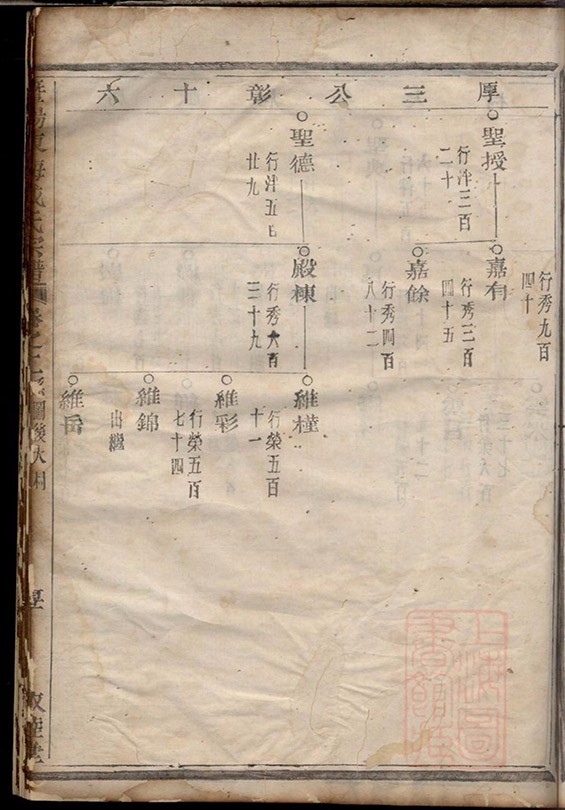 厚三公彰十六
行秀九百
四十
聖授
行洋三百
二十
嘉有
行秀三百
四十五
嘉餘
行秀四百
八十二
聖德
行洋五百
廿九
殿棟
行秀六百
三十九
維槿
行榮五百
十一
維彩
行榮五百
七十四
維錦
出繼
維岳
東海
氏宗譜
圖後大村
上海圖
書館藏